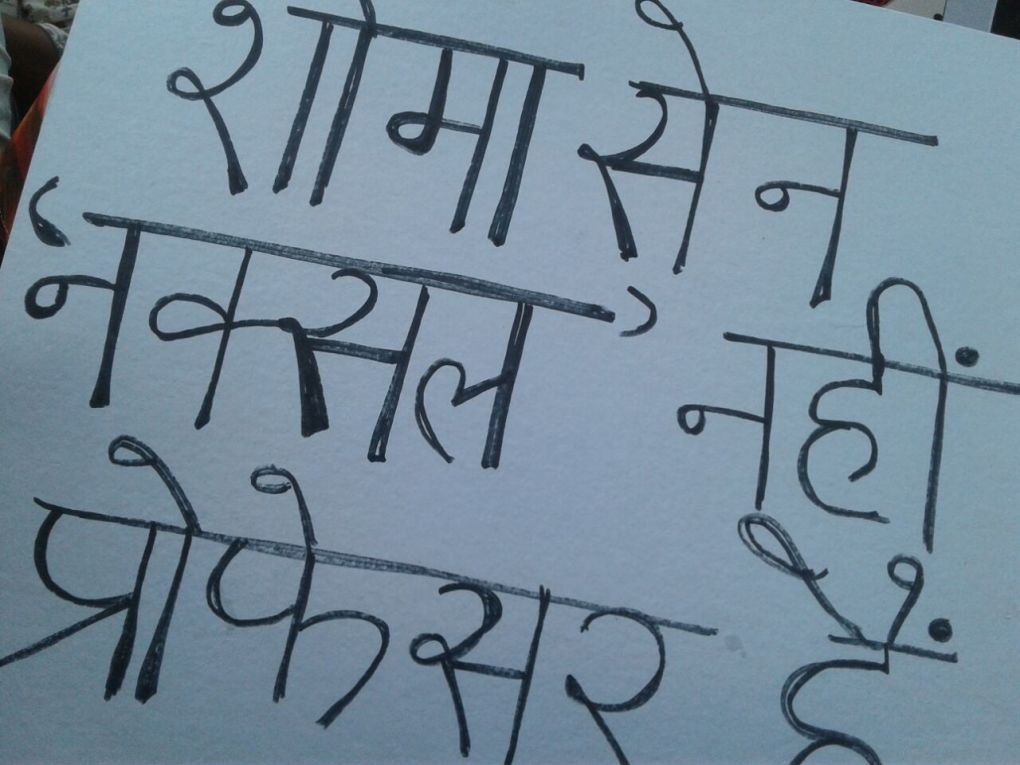 शोमा सेन
'नक्सल' नहीं
प्रोफेसर हैं